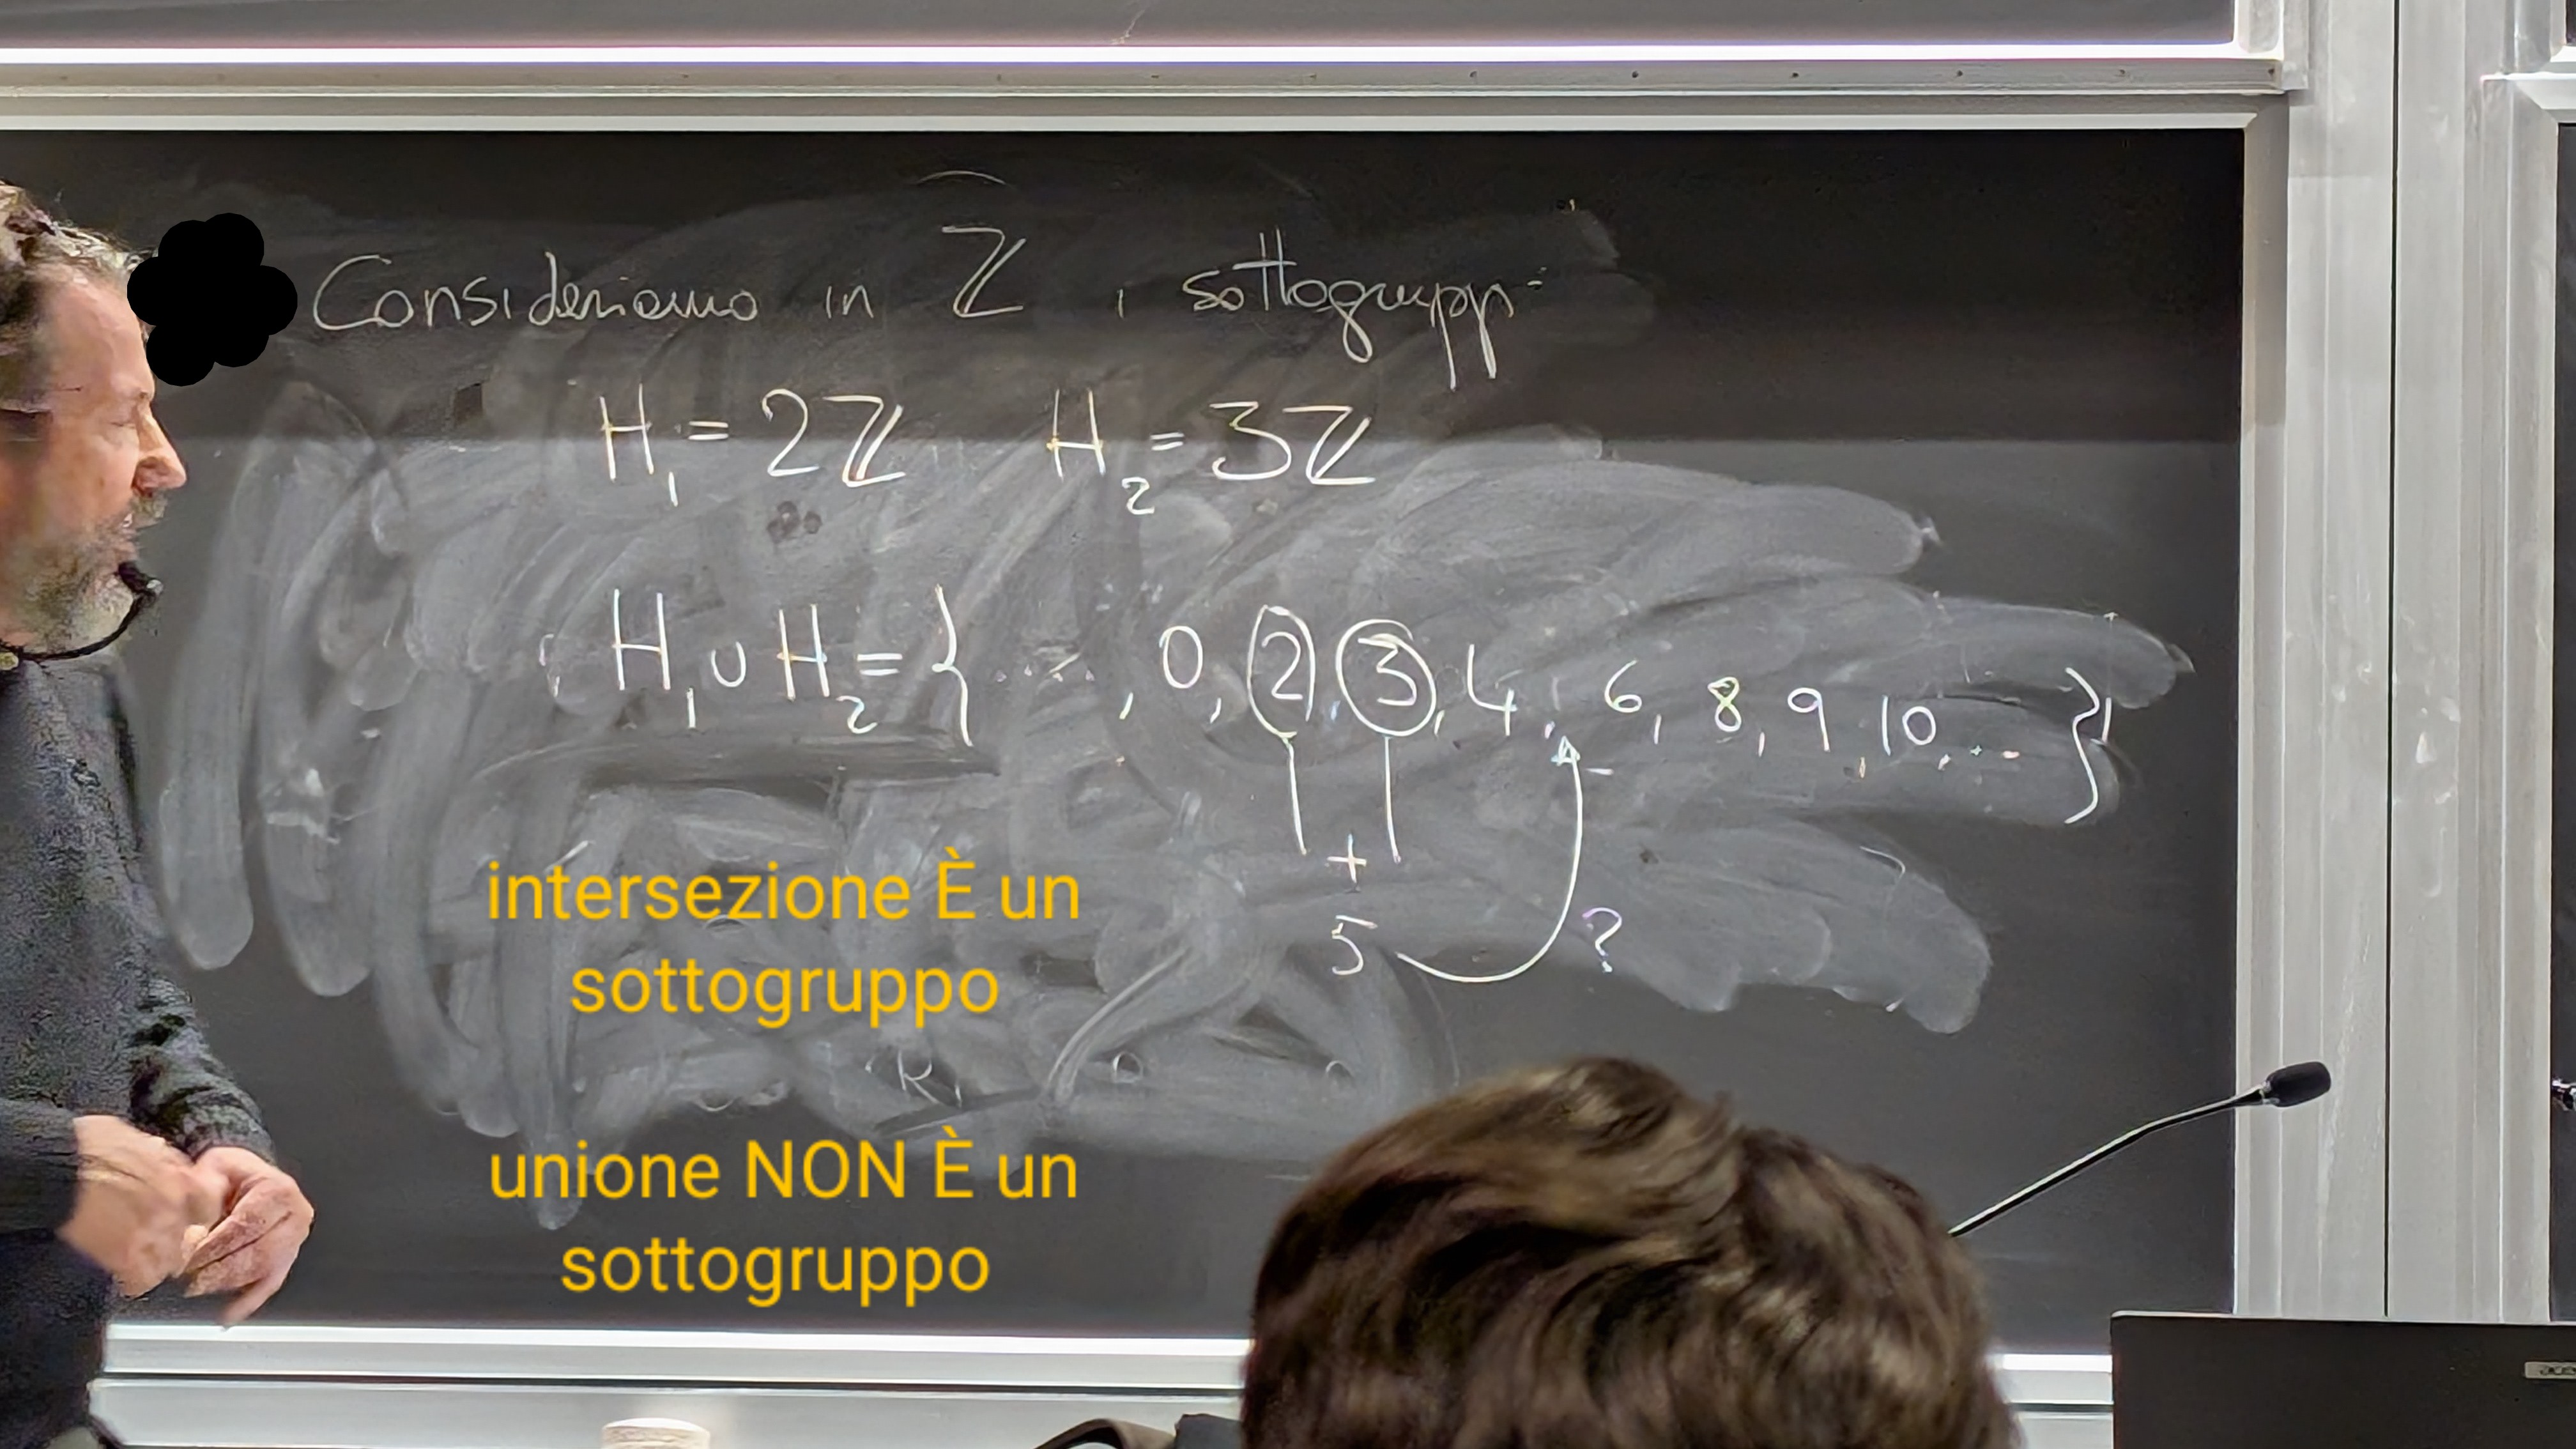 Consideriamo in ℤ i sottogruppi
H₁ = 2ℤ H₂ = 3ℤ
H₁ ∪ H₂ = { ..... , 0, 2, 3, 4, 6, 8, 9, 10, ... }
+
5 ?
intersezione È un
sottogruppo
unione NON È un
sottogruppo